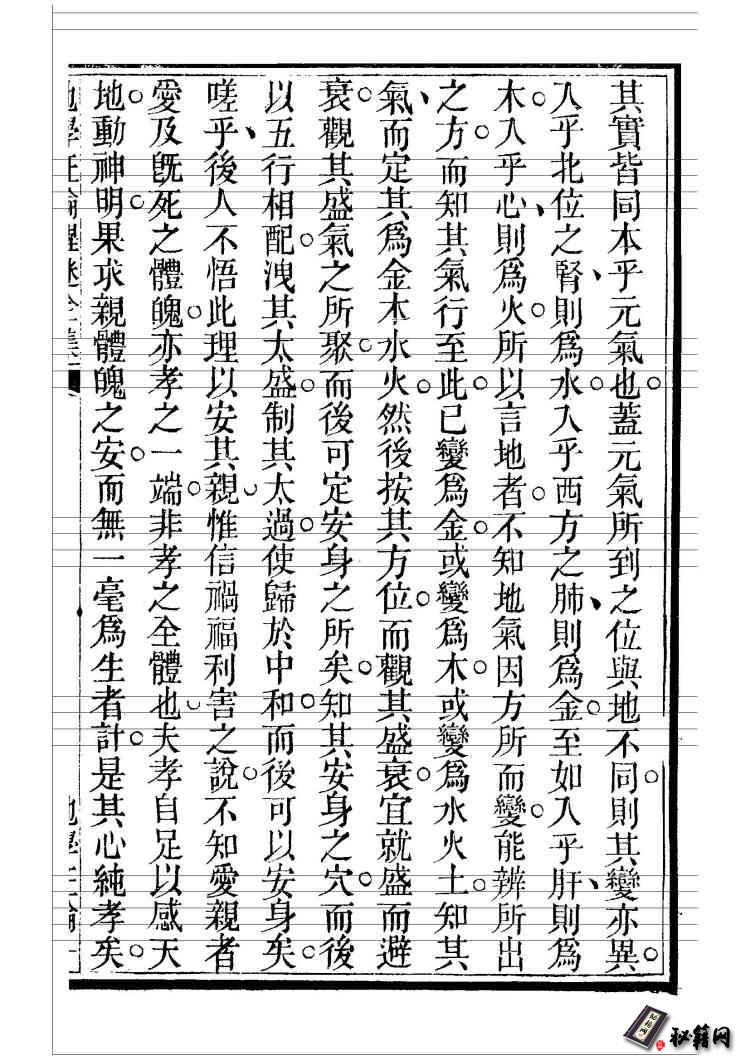 其實皆同本乎元氣也蓋元氣所到之位與地不同則其變亦異
入乎北位之腎則爲水入乎西方之肺則爲金至如入乎肝則爲
木入乎心則爲火所以言地者不知地氣因方所而變能辨所出
之方而知其氣行至此已變爲金或變爲木或變爲水火土知其
氣而定其爲金木水火然後按其方位而觀其盛衰宜就盛而避
衰觀其盛氣之所聚而後可定安身之所矣知其安身之穴而後
以五行相配洩其太盛制其太過使歸於中和而後可以安身矣
嗟乎後人不悟此理以安其親惟信禍福利害之說不知愛親者
愛及旣死之體魄亦孝之一端非孝之全體也夫孝自足以感天
地動神明果求親體魄之安而無一毫爲生者計是其心純孝矣
秘籍网